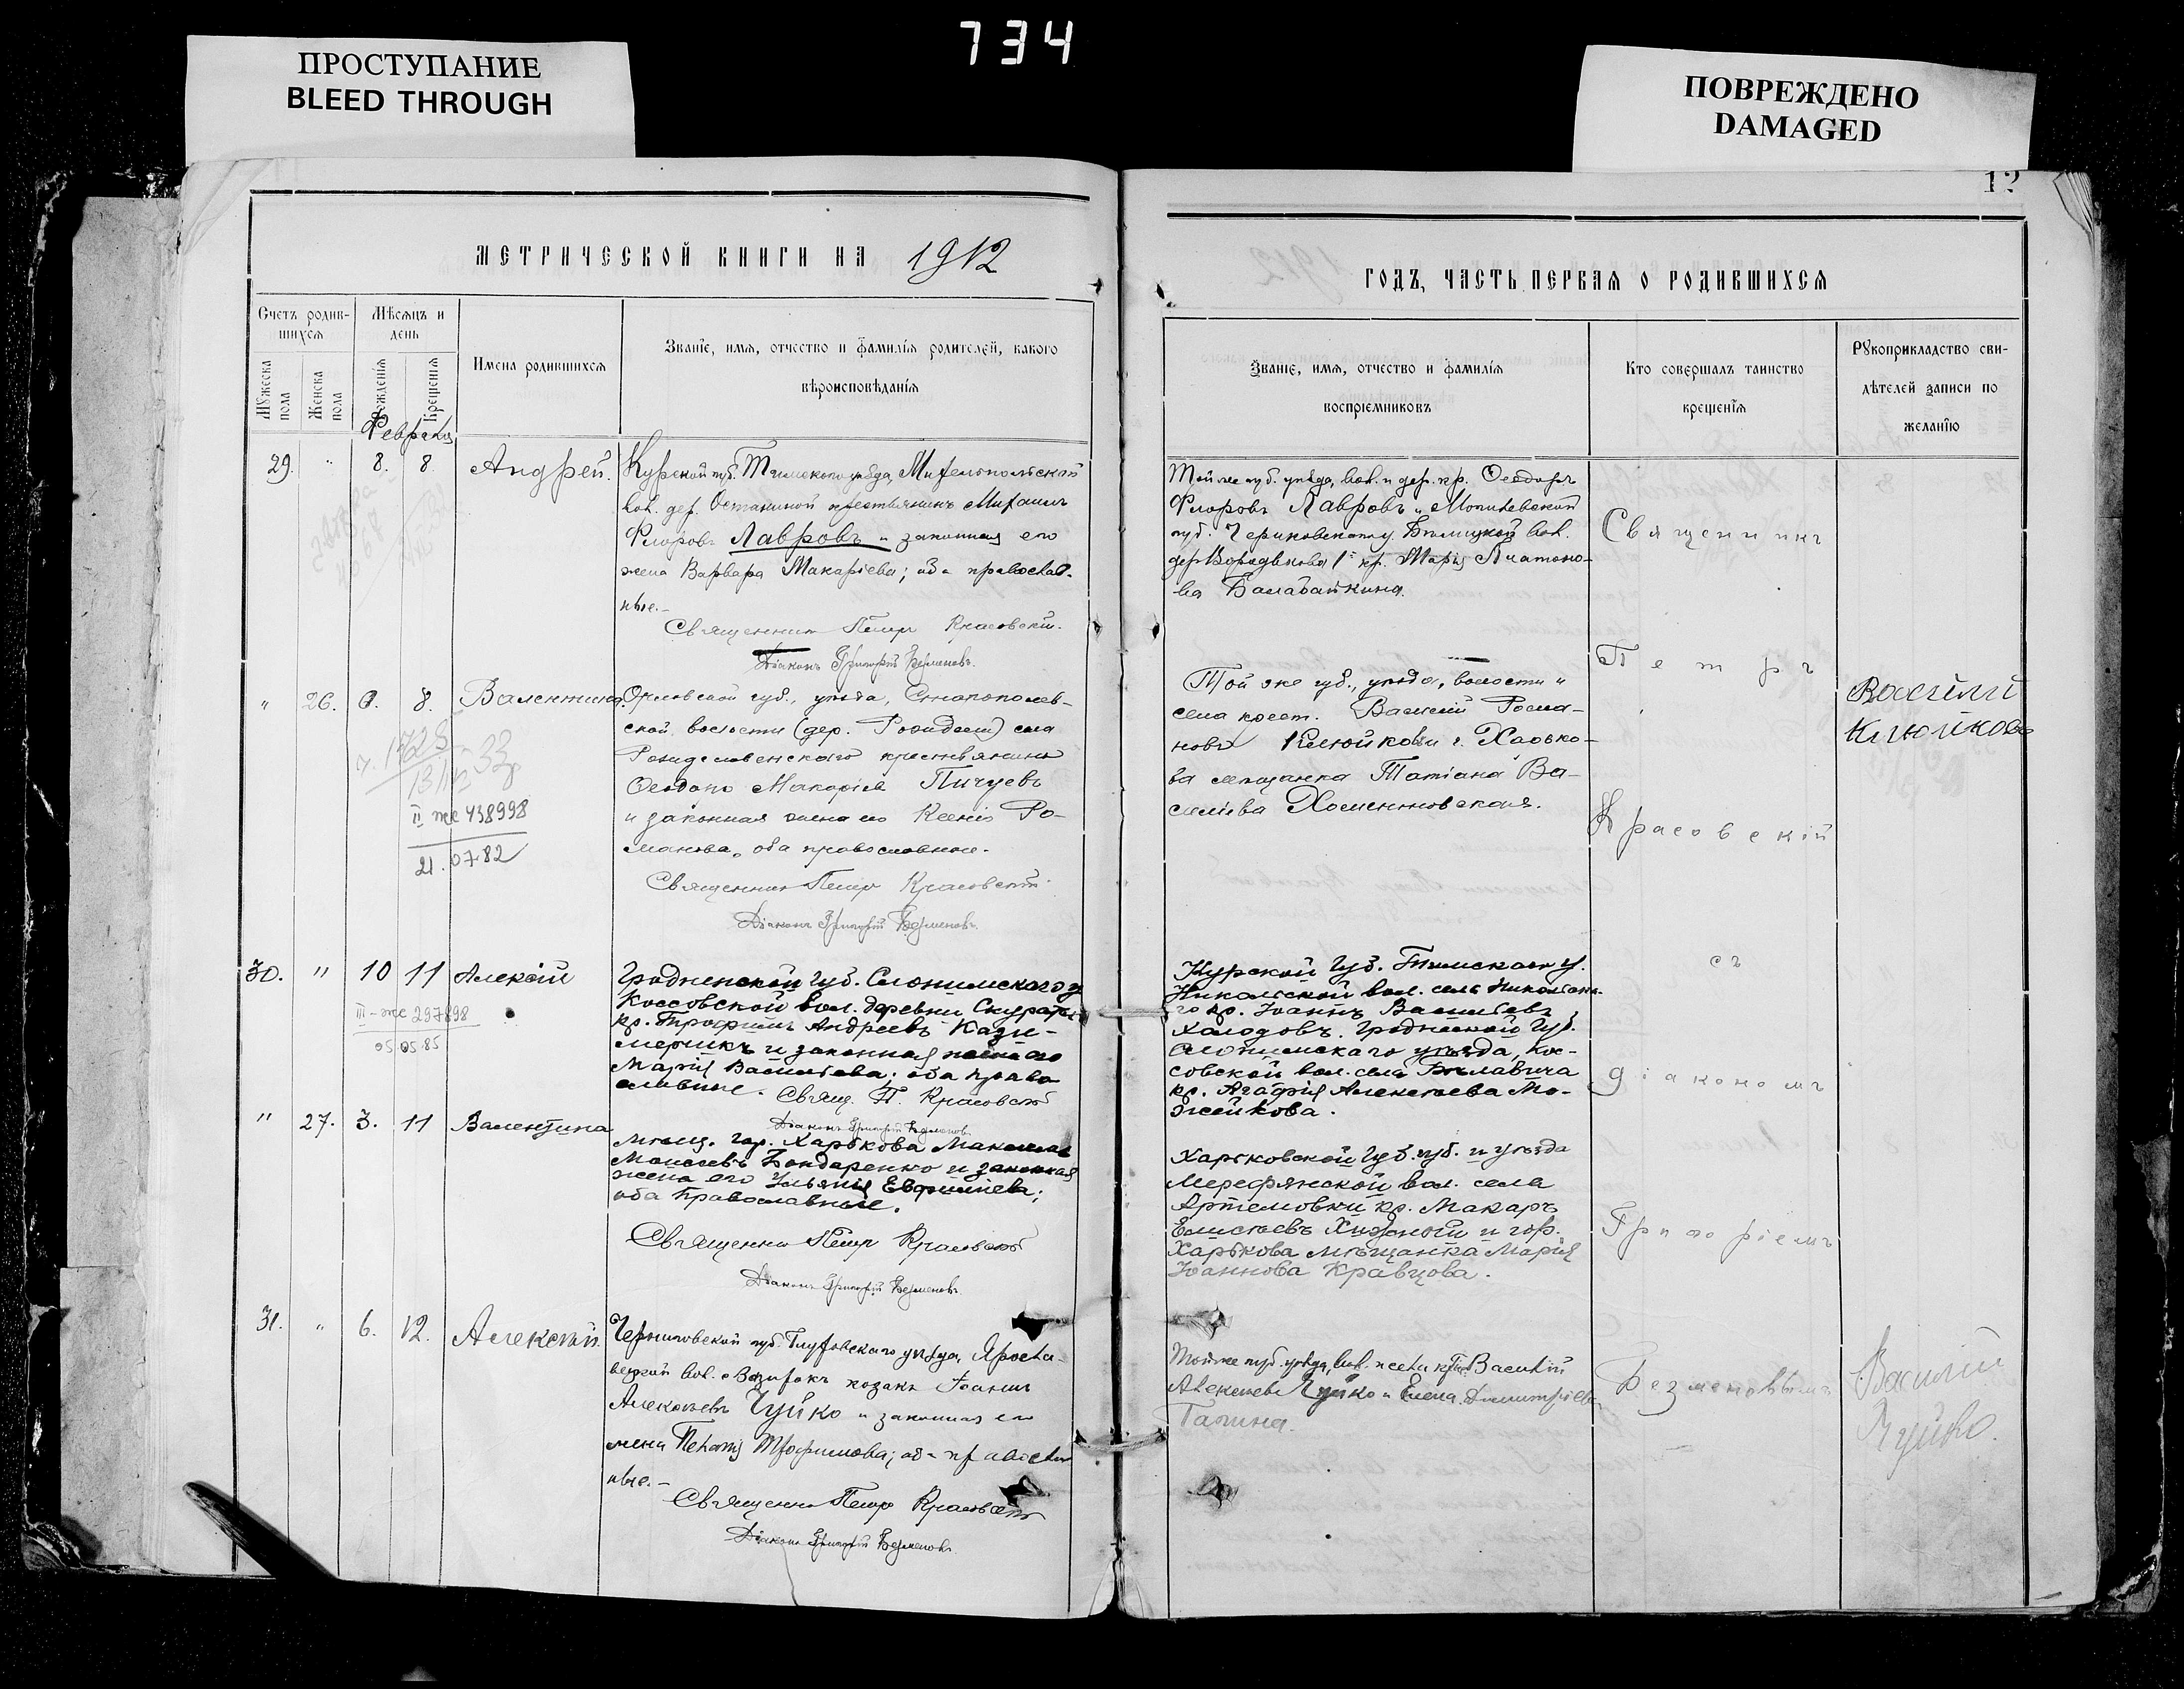 734
ПРОСТУПАНИЕ
BLEED THROUGH
ПОВРЕЖДЕНО
DAMAGED
12
МЕТРИЧЕСКОЙ КНИГИ НА 1912
ГОДЪ, ЧАСТЬ ПЕРВАЯ О РОДИВШИХСЯ
Счетъ родив-
шихся
Мѣсяцъ и
день
Мужеска
пола
Женска
пола
Рожденія
Крещенія
Имена родившихся
Званіе, имя, отчество и фамилія родителей, какого
вѣроисповѣданія
Званіе, имя, отчество и фамилія
воспріемниковъ
Кто совершалъ таинство
крещенія
Рукоприкладство сви-
дѣтелей записи по
желанію
Февраля
29. " 8. 8. Андрей.
Курской губ. Тимскаго уѣзда,
вол. дер. Останиной крестьянинъ Михаилъ
Флоровъ Лавровъ и законная его
жена Варвара Макаріева; оба православ-
ные.-
Священникъ Петръ Красовскій.
Діаконъ Григорій Безменовъ.
Той же губ. уѣзда, вол. и дер. кр. Ѳеодоръ
Флоровъ Лавровъ и Могилевской
губ. Чериковскаго у. вол.
кр. Марія Платоно-
ва Балабайкина.
" 26. 8. Валентина.
Орловской губ., уѣзда,
ской волости (дер.) села
Рождественскаго крестьянинъ
Макаріевъ Пичуевъ
и законная жена его Ксенія Ро-
манова, оба православные.
Священникъ Петръ Красовскій.
Діаконъ Григорій Безменовъ.
1728
13
II же 438998
21.07.82
Той же губ., уѣзда, волости и
села крест. Василій Рома-
новъ Клюйковъ и г. Харько-
ва мѣщанка Татіана Ва-
силіева
Василій
Клюйковъ
30. " 10 11 Алексій
Гродненской губ. Слонимскаго у.
Коссовской вол. деревни Скураты
кр. Трофимъ Андреевъ Кази-
мерикъ и законная жена его
Марія Васильева; оба право-
славные. Свящ. П. Красовскій
Діаконъ Григорій Безменовъ
III-же 297898
05.05.85
Курской губ. Тимскаго у.
Никольской вол. села Никольска-
го кр. Іоаннъ Васильевъ
Холодовъ. Гродненской губ.
Слонимскаго уѣзда, Кос-
совской вол. села Бѣлавича
кр. Агафія Алексѣева Мо-
жейкова.
" 27. 3. 11 Валентина
Мѣщ. гор. Харькова
Моисеевъ Бондаренко и законная
жена его Ульянія Евфиміева;
оба православные.
Священникъ Петръ Красовскій
Діаконъ Григорій Безменовъ.
Харьковской губ. и уѣзда
Мерефянской вол. села
Артемовки кр. Макаръ
Елисѣевъ и гор.
Харькова мѣщанка Марія
Іоаннова Кравцова.
31. " 6. 12. Алексій.
Черниговской губ. Глуховскаго уѣзда, Яросла-
вецкой вол. козакъ Іоаннъ
Алексѣевъ Чуйко и законная его
жена Пелагія Трофимова; оба православ-
ные.-
Священникъ Петръ Красовскій
Діаконъ Григорій Безменовъ.
Той же губ. уѣзда, вол. и села Василій
Алексѣевъ Чуйко и Елена Димитріева
Галина.
Священникъ
Петръ
Красовскій
съ
діакономъ
Григоріемъ
Безменовымъ
Василій
Чуйко.